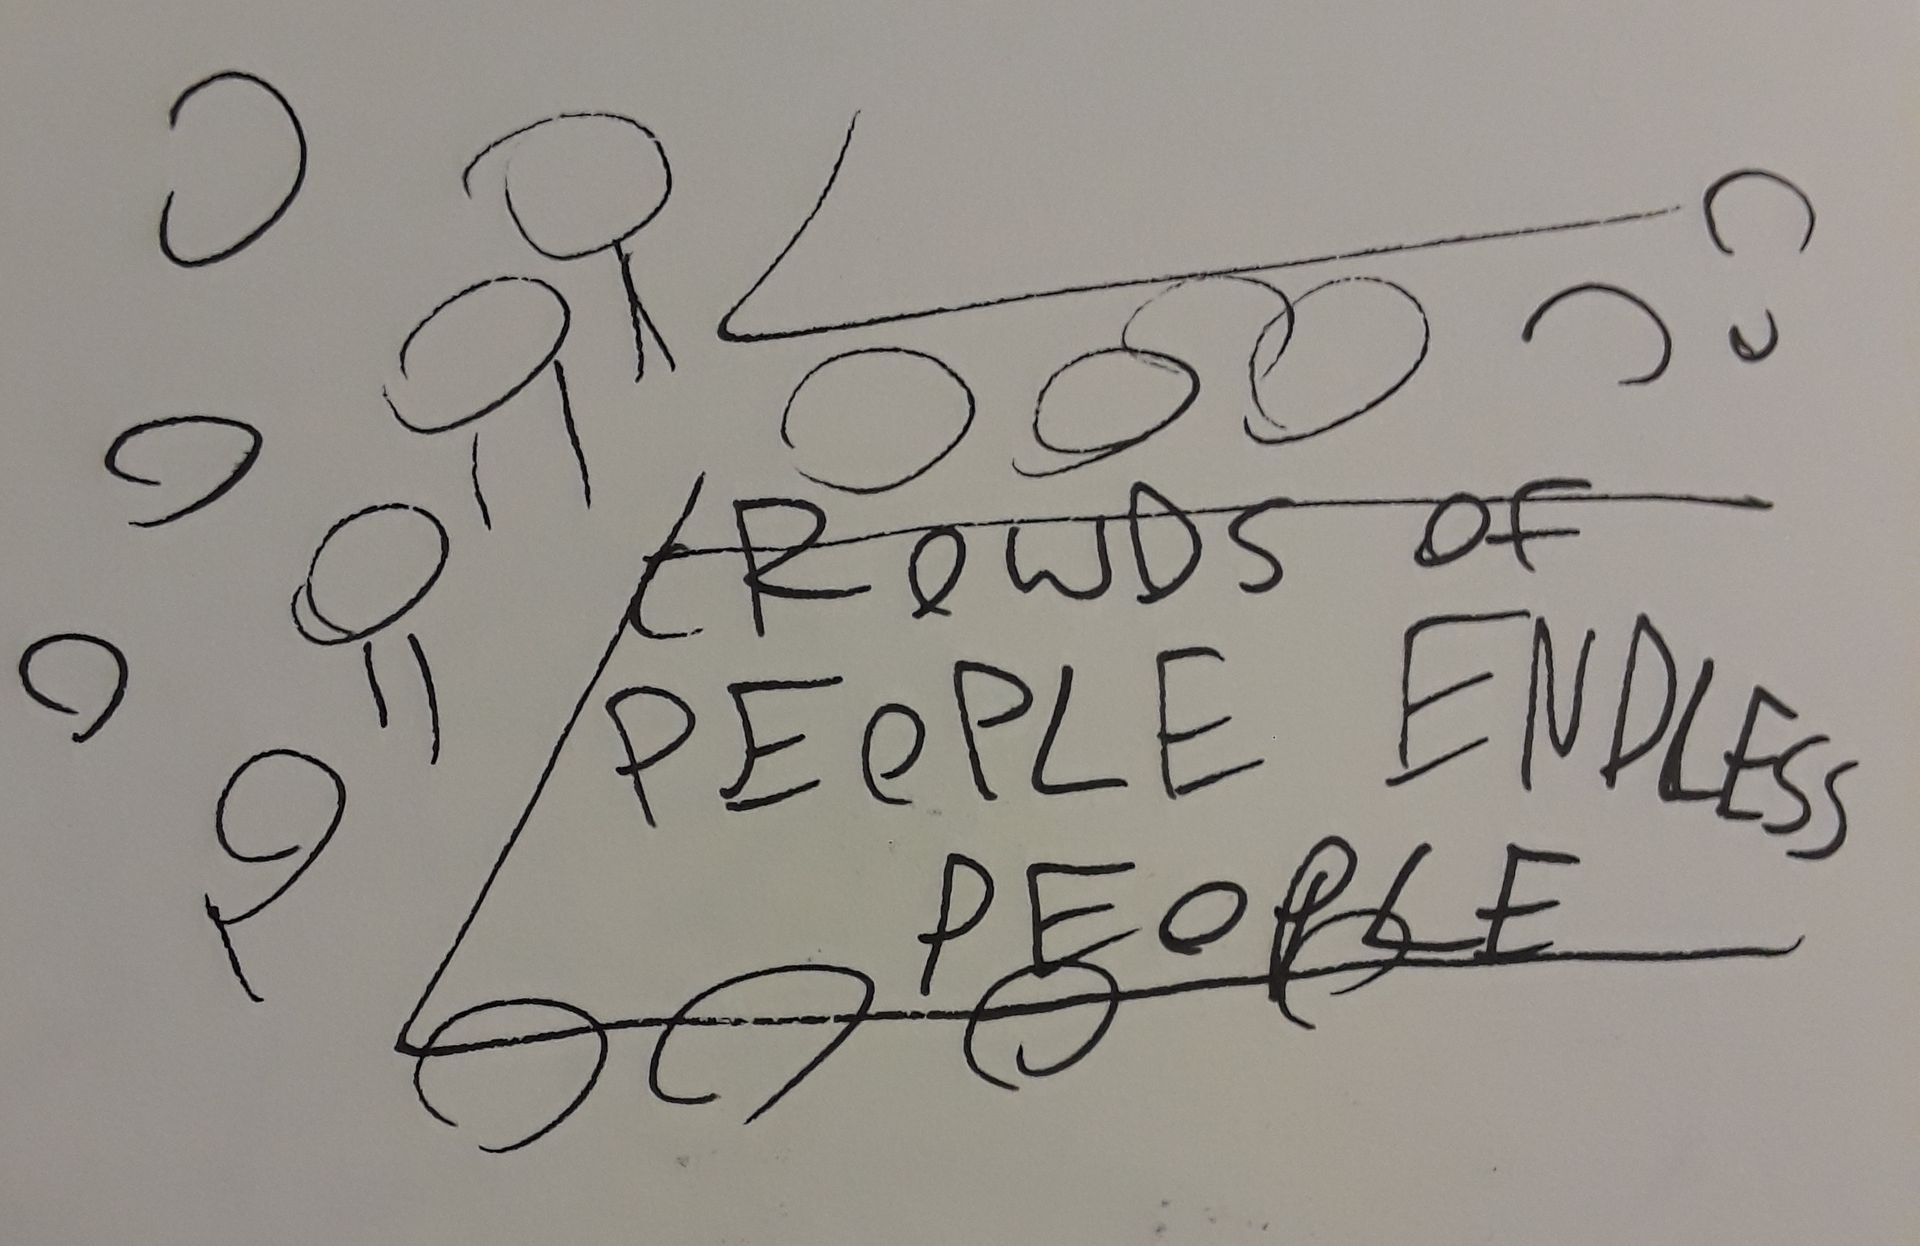 CROWDS OF
PEOPLE ENDLESS
PEOPLE